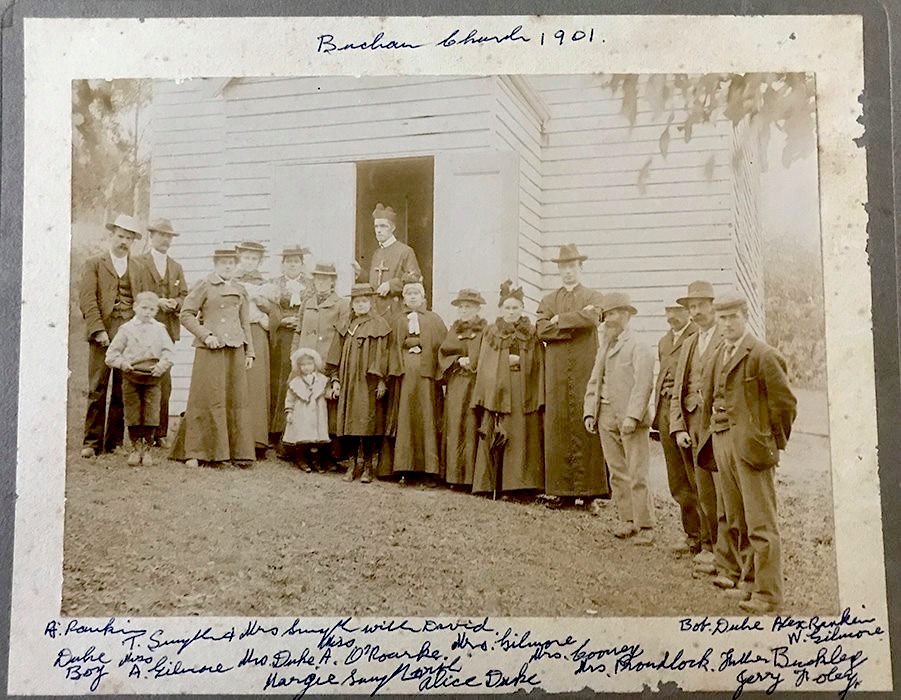 Buchan Church 1901.
A. Rankin T. Smyth & Mrs Smyth with David Bob. Duke Alex Rankin
Duke Mrs Miss Mrs. Gilmore W. Gilmore
Boy A. Gilmore Mrs. Duke A. O'Roarke, Mrs. Cooney Mrs. Proudlock. Father Buckley
Margie Smyth Alice Duke Jerry Foley.